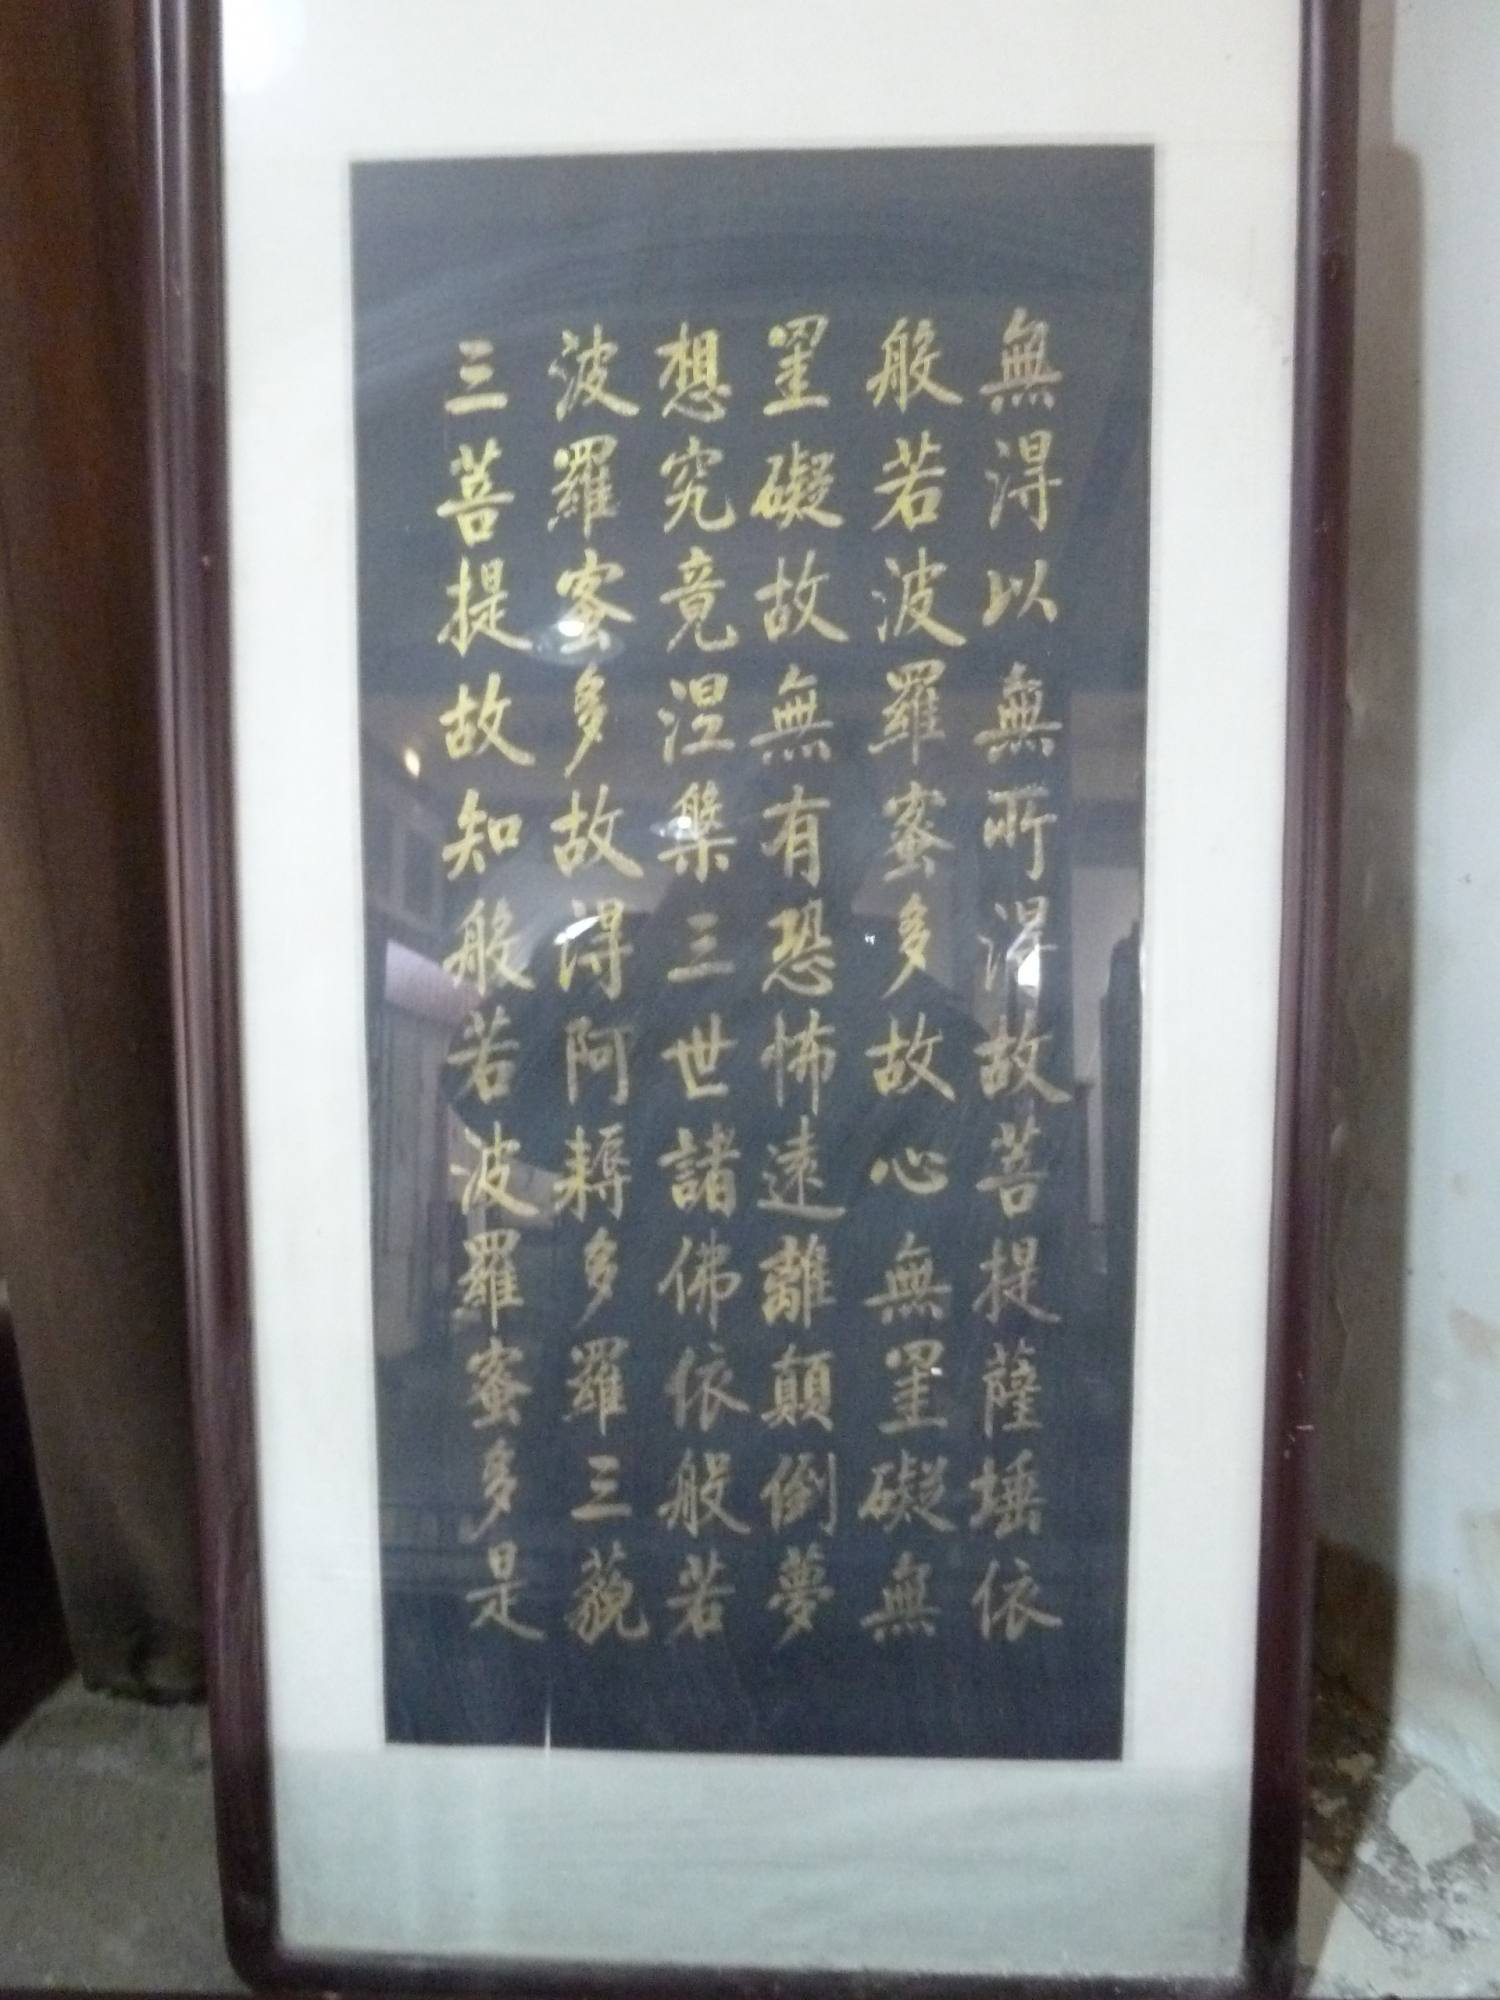 無得以無所得故菩提薩埵依
般若波羅蜜多故心無罣礙無
罣礙故無有恐怖遠離顛倒夢
想究竟涅槃三世諸佛依般若
波羅蜜多故得阿耨多羅三藐
三菩提故知般若波羅蜜多是